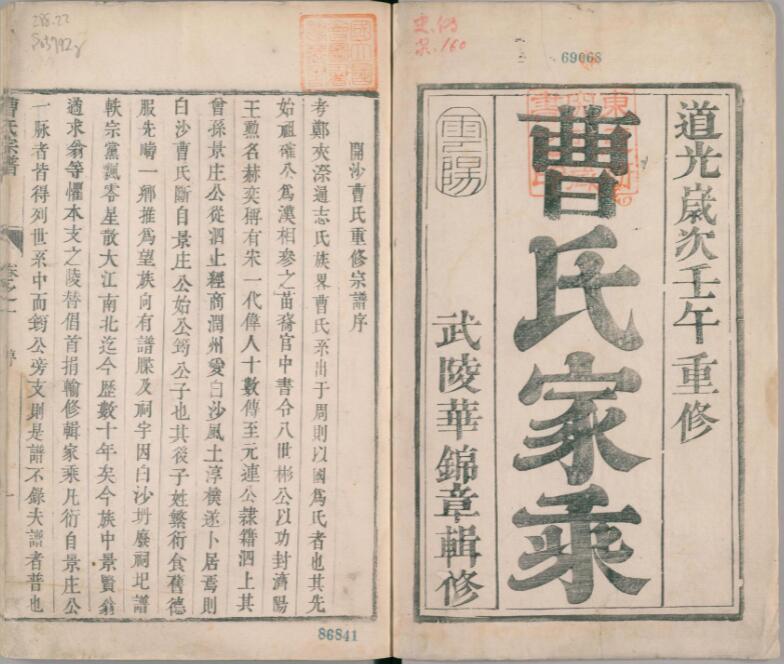 69068
道光歲次壬午重修
曹氏家乘
武陵華錦章輯修
雲陽
開沙曹氏重修宗譜序
考鄭夾漈通志氏族畧曹氏系出于周則以國爲氏者也其先
始祖確公爲漢相參之苗裔官中書令八世彬公以功封濟陽
王勲名赫奕稱有宋一代偉人十數傳至元連公隸籍泗上其
曾孫景庄公從泗上經商潤州愛白沙風土淳樸遂卜居焉則
白沙曹氏斷自景庄公始公筠公子也其後子姓繁衍食舊德
服先疇一鄉推爲望族向有譜牒及祠宇因白沙坍廢祠圮譜
軼宗黨飄零星散大江南北迄今歷數十年矣今族中景賢翁
過求翁等懼本支之陵替倡首捐輸修輯家乘凡衍自景庄公
一脉者皆得列世系中而筠公旁支則是譜不錄夫譜者普也
曹氏宗譜
卷之一
序
一
86841